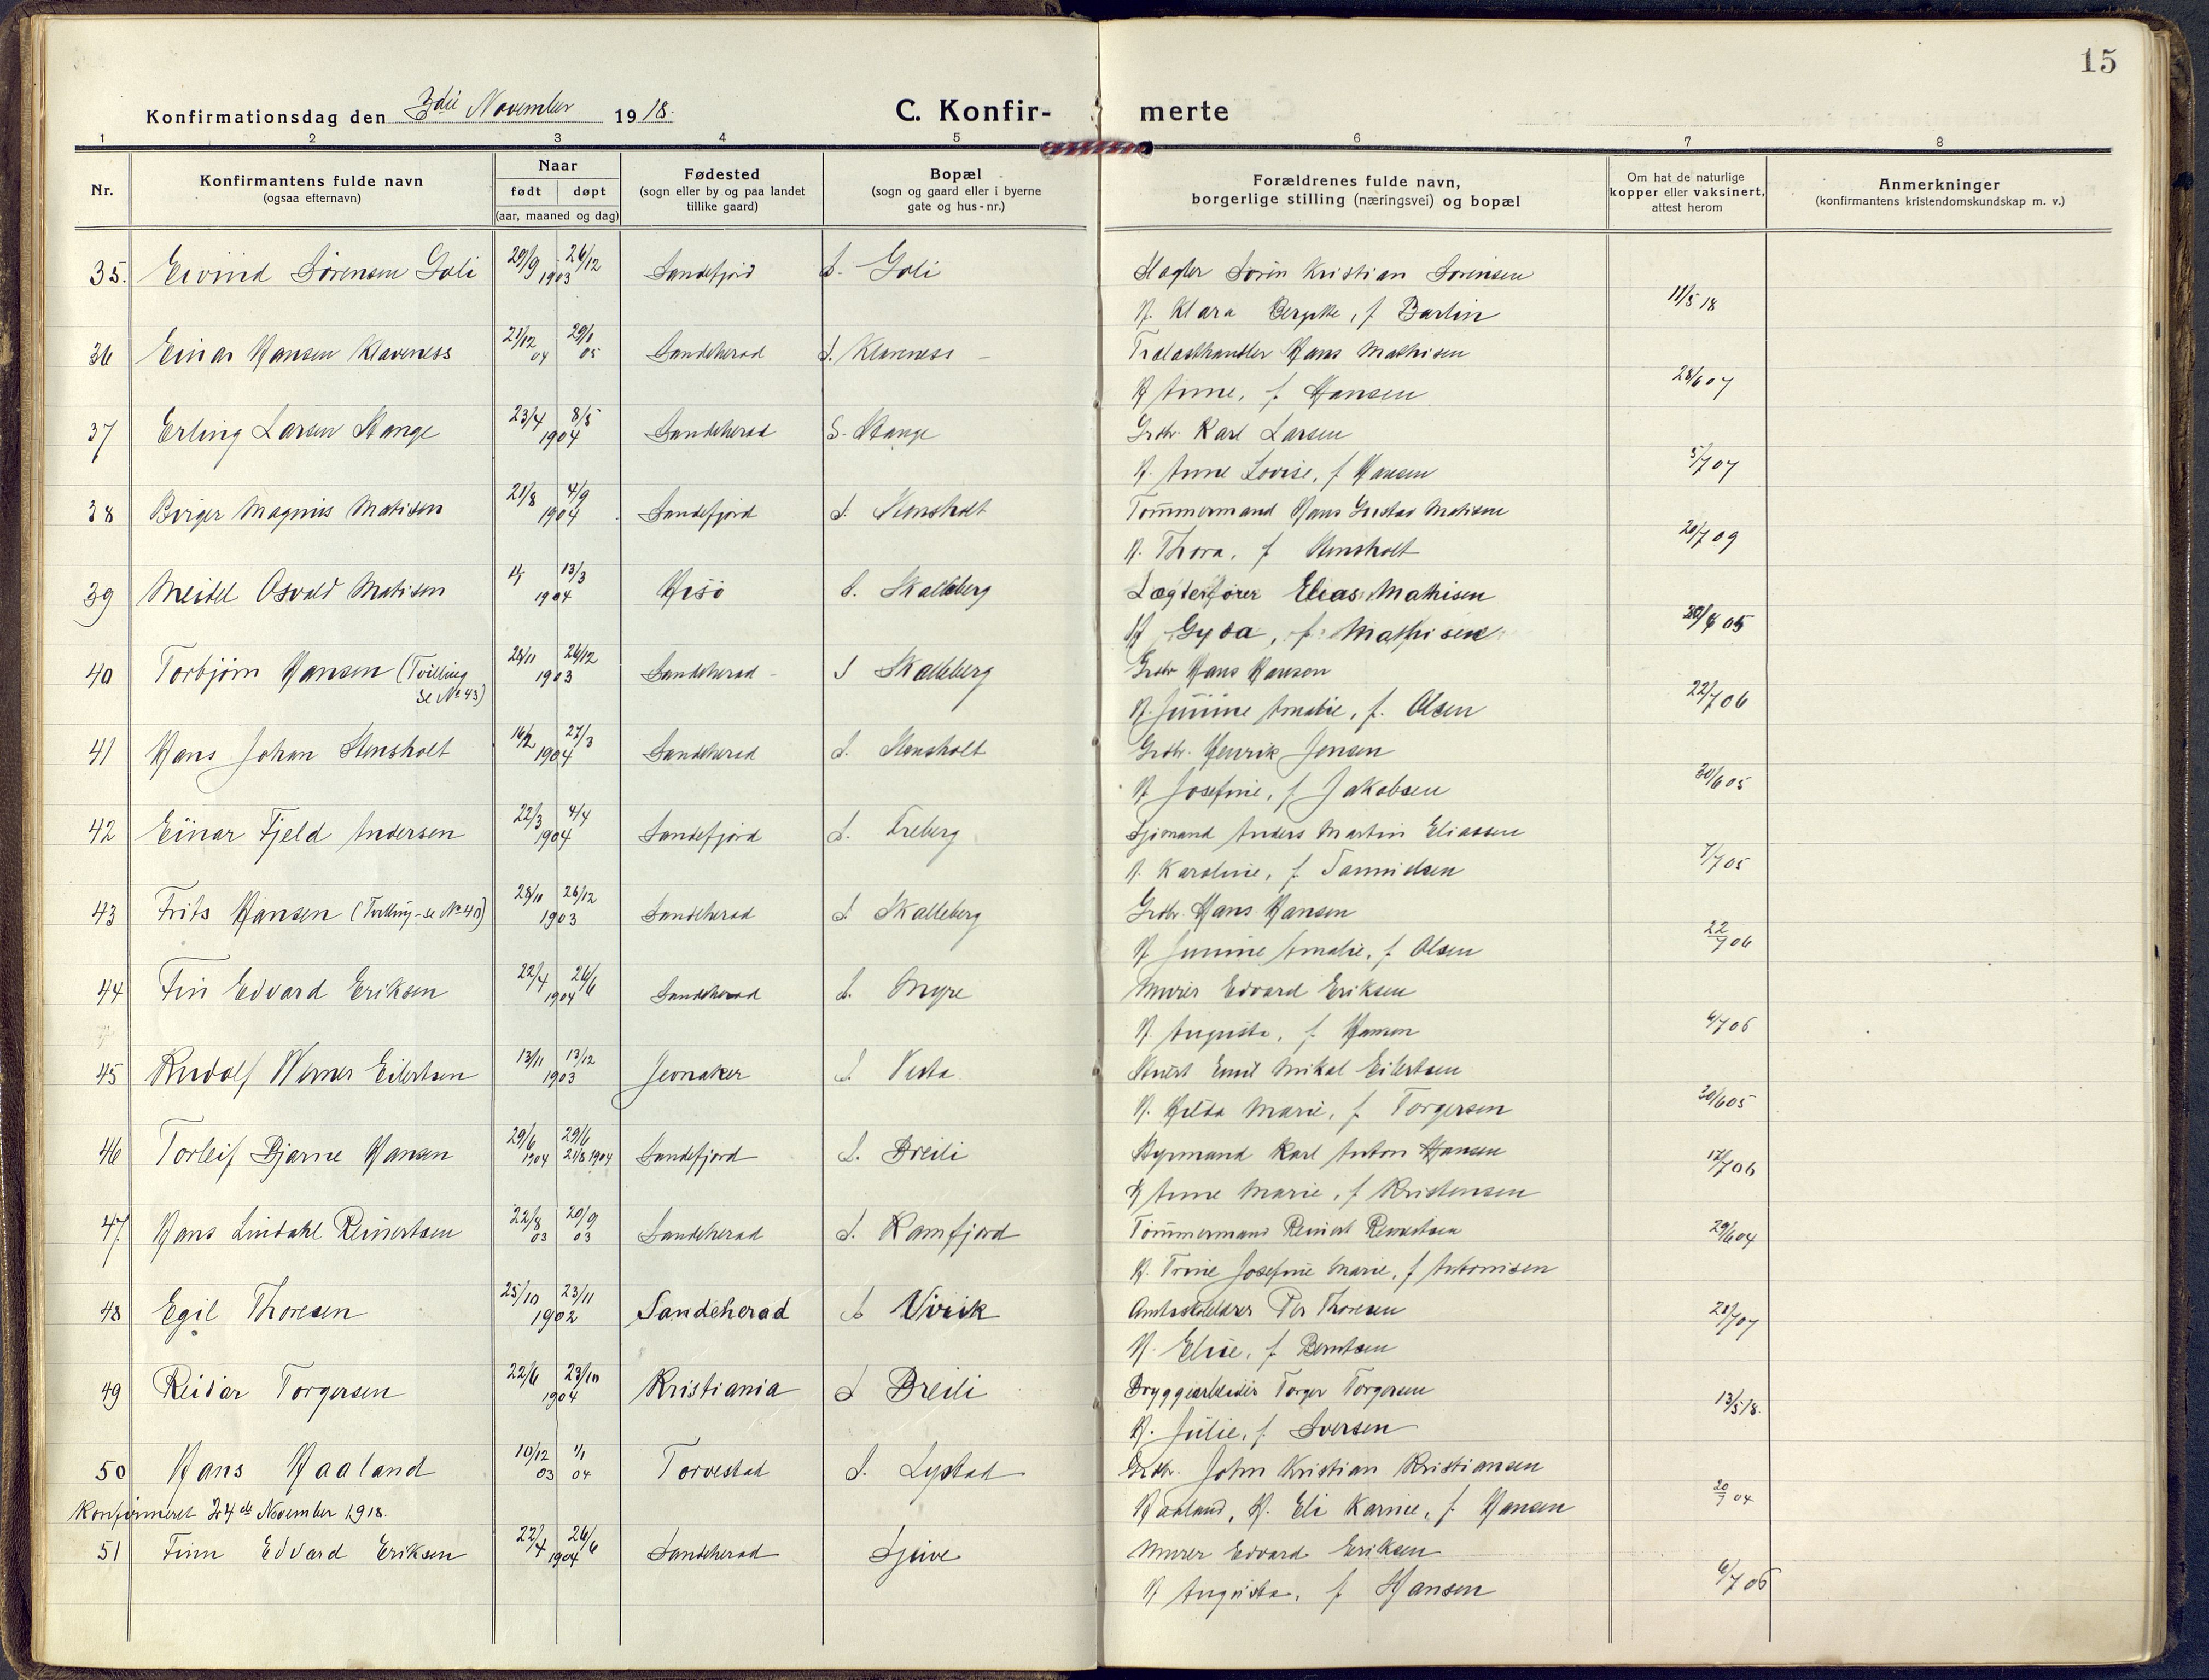 15
Konfirmationsdag den 3die November 1918.
C. Konfir- merte
1 2 3 4 5 6 7 8
Nr.
Konfirmantens fulde navn
(ogsaa efternavn)
Naar
født døpt
(aar, maaned og dag)
Fødested
(sogn eller by og paa landet
tillike gaard)
Bopæl
(sogn og gaard eller i byerne
gate og hus-nr.)
Forældrenes fulde navn,
borgerlige stilling (næringsvei) og bopæl
Om hat de naturlige
kopper eller vaksinert,
attest herom
Anmerkninger
(konfirmantens kristendomskundskap m. v.)
35. Eivind Sørensen Goli 29/9 26/12 1903 Sandefjord S. Goli Slagter Søren Kristian Sørensen
H. Klara, f. 11/5 18
36 Einar Hansen Klaveness 21/12 04 29/1 05 Sandeherad S. Klavness Trælasthandler Hans Mathisen
H Anne, f Hansen 28/6 07
37 Erling Larsen Stange 23/4 8/5 1904 Sandeherad S. Stange Grdbr. Karl Larsen
H. Anne Lovise, f Hansen 5/7 07
38 Birger Magnus Matisen 21/8 4/9 1904 Sandefjord S. Stensholt Tømmermand Hans Gustav Matisen
H. Thora, f Stensholt 20/7 09
39 Meidel Osvald Matisen 13/3 1904 Hisø S. Skalleberg Lægterfører Elias Mathisen
H Gyda, f. Mathisen 05
40 Torbjørn Hansen (Tvilling
se No 43) 28/11 26/12 1903 Sandeherad S Skalleberg Grdbr Hans Hansen
H. Amalie, f. Olsen 22/7 06
41 Hans Johan Stensholt 16/2 27/3 1904 Sandeherad S. Stensholt Grdbr. Henrik Jensen
H Josefine, f Jakobsen 30/6 05
42 Einar Fjeld Andersen 22/3 4/4 1904 Sandefjord S. Freberg Sjømand Anders Martin Eliassen
H. Karoline, f. 7/7 05
43 Frits Hansen (Tvilling - se No 40) 28/11 26/12 1903 Sandeherad S Skalleberg Grdbr. Hans Hansen
H Amalie, f Olsen 22/7 06
44 Fin Edvard Eriksen 22/4 26/6 1904 Sandeherad S. Myre Murer Edvard Eriksen
H. Augusta, f. Hansen 6/7 06
45 Rudolf Werner Eilertsen 13/11 13/12 1903 Jevnaker S Vesta Emil Mikal Eilertsen
H. Hilda Marie, f Torgersen 30/6 05
46 Torleif Bjarne Hansen 29/6 1904 29/6 21/8 1904 Sandefjord S. Breili Styrmand Karl Anton Hansen
H Anne Marie, f Kristensen 12/7 06
47 Hans Lindahl Reinertsen 22/8 03 20/9 03 Sandeherad S. Ramfjord Tømmermand Reinert Reinertsen
H. Trine Josefine Marie, f Antonisen 29/6 04
48 Egil Thoresen 25/10 23/11 1902 Sandeherad S Virik Amtsskolelærer Per Thoresen
H. Elise, f Berntsen 20/7 07
49 Reidar Torgersen 22/6 23/10 1904 Kristiania S Breili Bryggearbeider Torger Torgersen
H. Julie, f Iversen 13/5 18.
50 Hans Haaland 10/12 03 1/1 04 Torvestad S. Lystad Grdbr. John Kristian Kristiansen
Haaland, H. Eli Karine, f Hansen 20/7 04
Konfirmeret 24de November 1918.
51 Finn Edvard Eriksen 22/4 26/6 1904 Sandeherad Sjuve Murer Edvard Eriksen
H Augusta, f Hansen 6/7 06